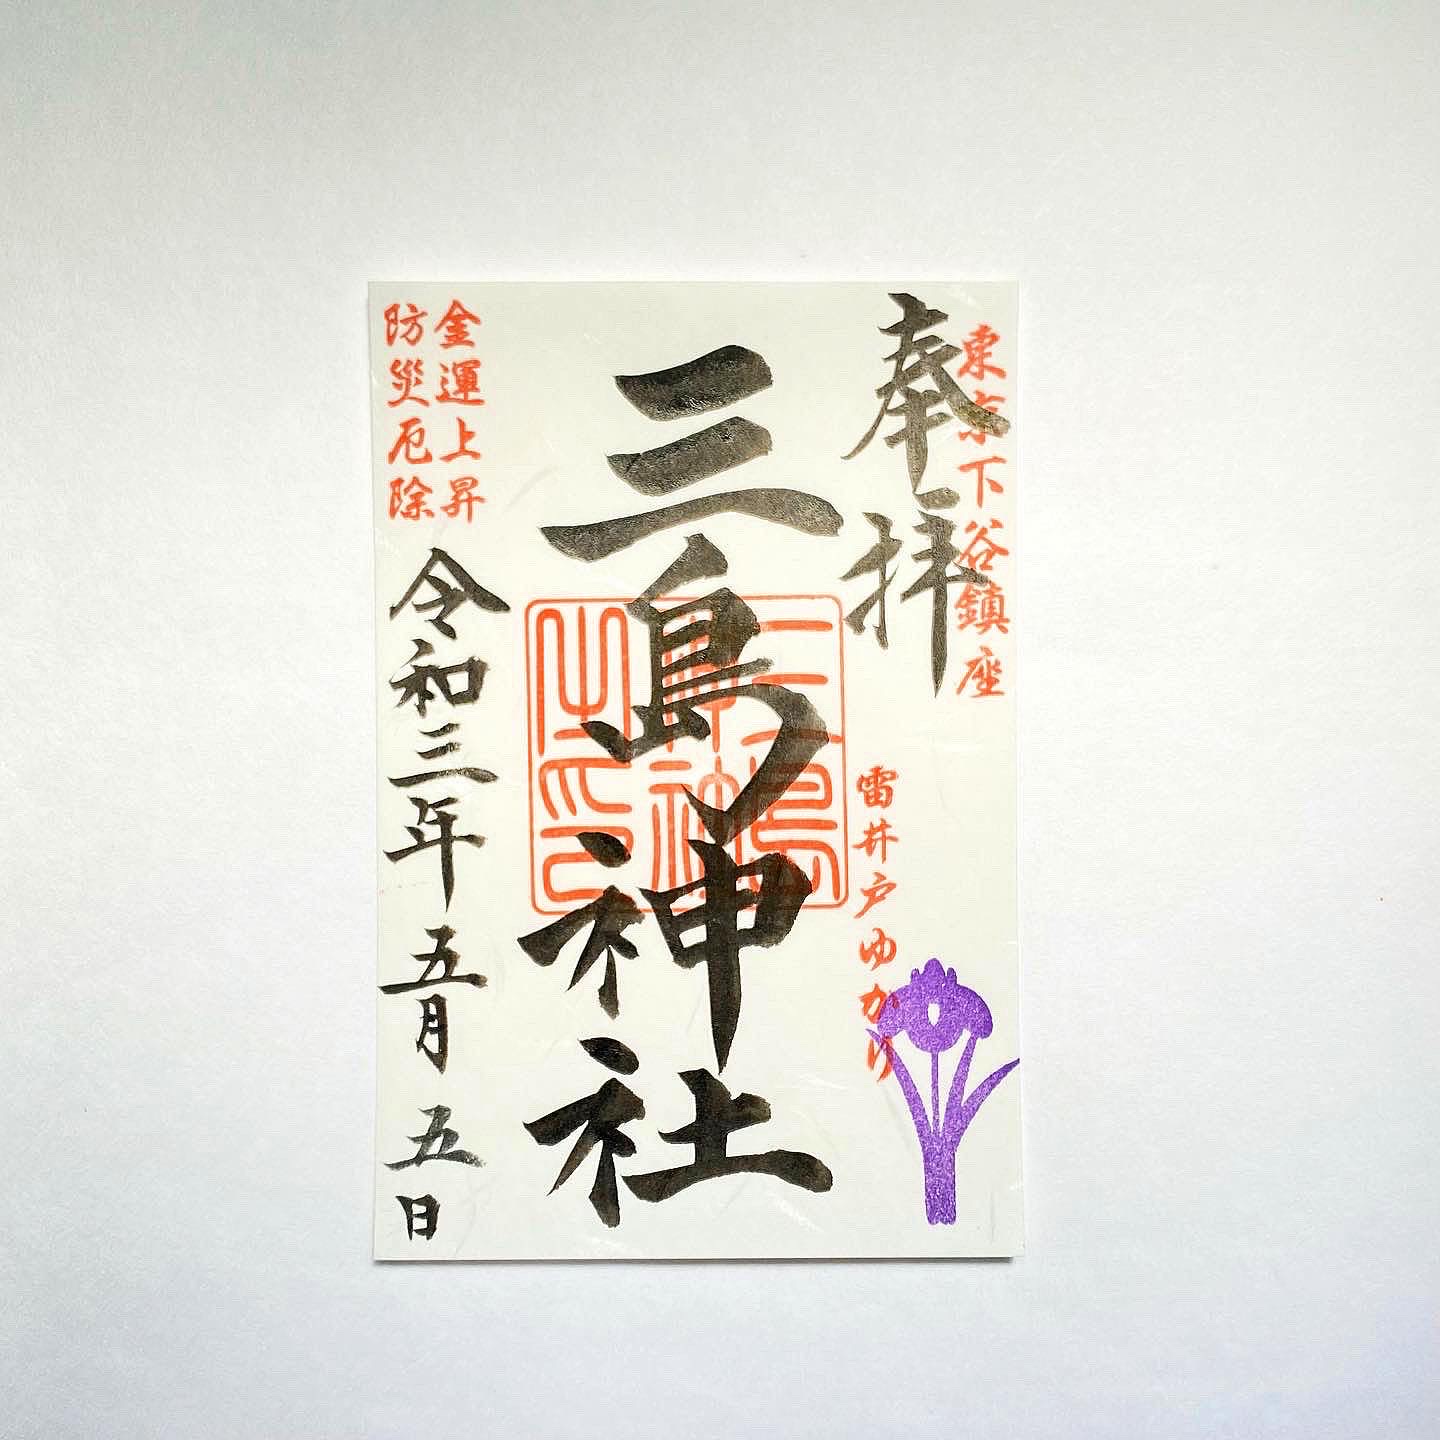 東京下谷鎮座
奉拝
雷井戸ゆかり
三島神社
三島神社之印
金運上昇
防災厄除
令和三年五月五日